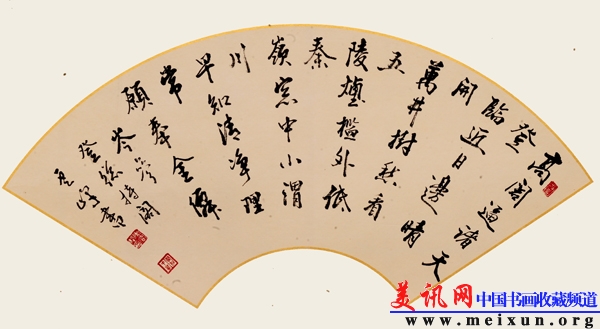 高閣逼諸天
登臨近日邊晴
開萬井樹愁看
五陵烟檻外低
秦嶺窓中小渭
川早知清净理
常願奉金僊
岑參登總持閣
峰書
美讯网 中国书画收藏频道
www.meixun.org